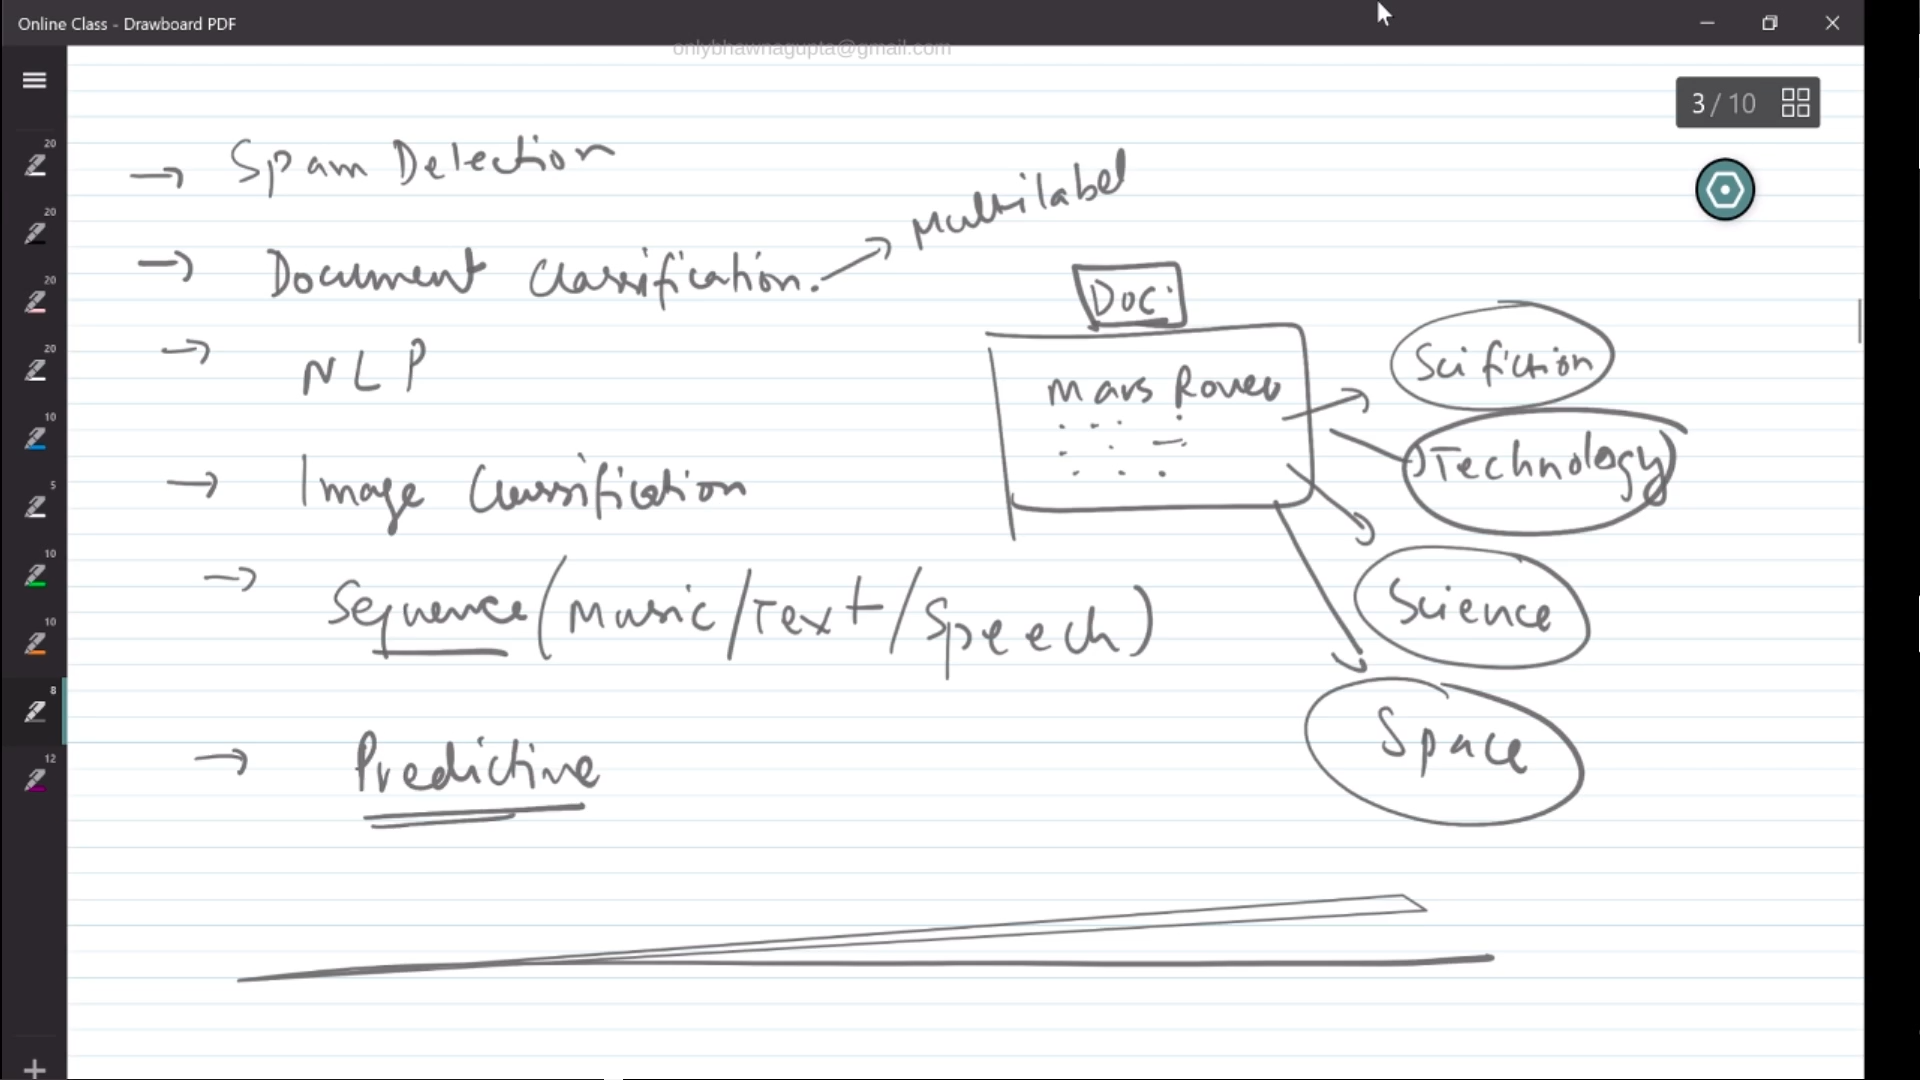 Online Class - Drawboard PDF
onlybhawnagupta@gmail.com
3 / 10
20
20
20
20
10
5
10
10
8
12
→ Spam Detection
→ Document Classification. → Multilabel
→ NLP
→ Image Classification
→ Sequence (Music/Text/Speech)
→ Predictive
Doc.
Mars Rover
Sci fiction
Technology
Science
Space